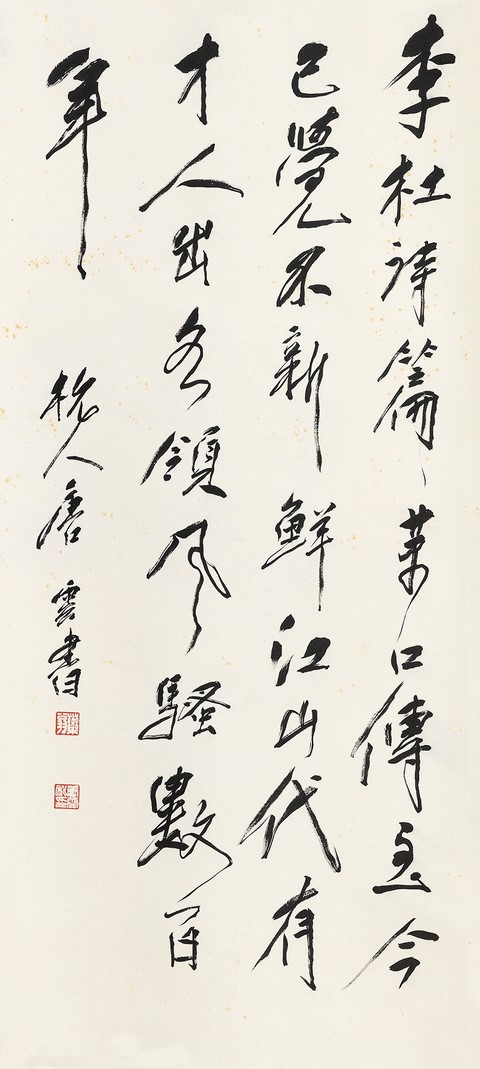 李杜詩篇萬口傳至今
已覺不新鮮江山代有
才人出各領風騷數百
年
杭人唐雲書